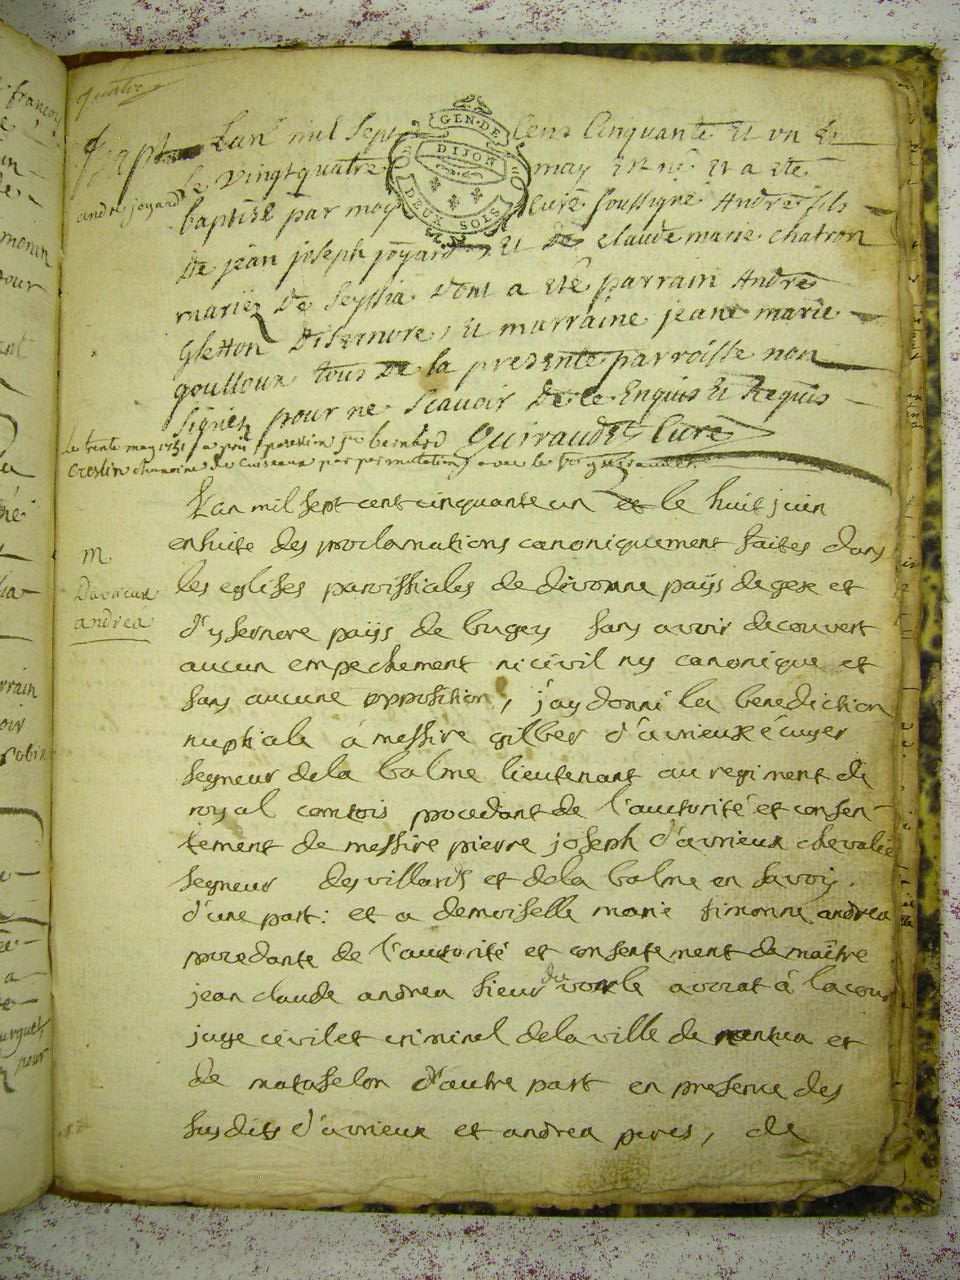 quatre
Lan mil sept cent cinquante et un et
le vingtquatre may est né et a eté
andré joyard
baptisé par moy curé soussigné André fils
De jean joseph joyard et de claude marie chatron
mariez De Seyssia dont a eté parrain André
Gletton Disernore, et marraine jeane marie
goulloux tous de la presente parroisse non
signez pour ne scavoir De ce Enquis Et Requis
GEN. DE
DIJON
DEUX SOLS
Guiraudet Curé
le trente may 1751 a pris possession
Crestin chanoine de Cuiseaux par permutation avec le
L'an mil sept cent cinquante un et le huit juin
ensuite des proclamations canoniquement faites dans
m.
les eglises parroissiales de divonne païs de gex et
Davrieux
andrea
d'ysernore païs de bugey sans avoir decouvert
aucun empechement ni civil ny canonique et
sans aucune opposition, j'ay donné la benediction
nuptiale à messire gilber d'avrieux écuyer
segneur de la balme lieutenant au regiment de
royal comtois procedant de l'autorité et consen-
tement de messire pierre joseph d'avrieux chevalier
segneur des villards et de la balme en savoy.
d'une part: et a demoiselle marie simonne andrea
procedante de l'autorité et consentement de maître
jean claude andrea sieur du vorle avocat à la cour
juge civil et criminel de la ville de nantua et
de matafelon d'autre part en presence des
susdits d'avrieux et andrea peres, de